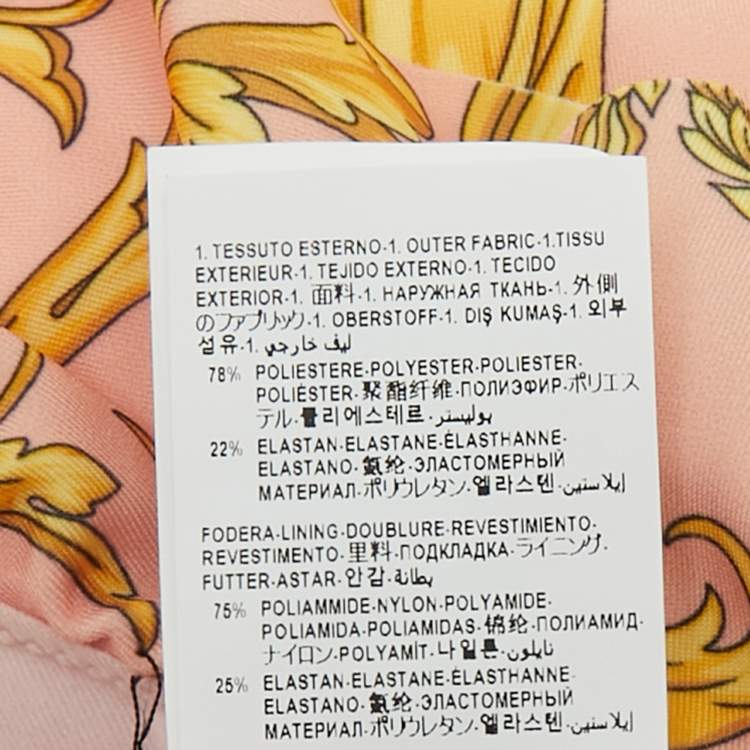 1. TESSUTO ESTERNO-1. OUTER FABRIC-1.TISSU
EXTERIEUR-1. TEJIDO EXTERNO-1. TECIDO
EXTERIOR-1. 面料-1. НАРУЖНАЯ ТКАНЬ-1. 外側
のファブリック-1. OBERSTOFF-1. DIŞ KUMAŞ-1. 외부
섬유-1. ليف خارجي
78% POLIESTERE-POLYESTER-POLIESTER-
POLIÉSTER-聚酯纤维-ПОЛИЭФИР-ポリエス
テル-폴리에스테르-بوليستر
22% ELASTAN-ELASTANE-ÉLASTHANNE-
ELASTANO-氨纶-ЭЛАСТОМЕРНЫЙ
МАТЕРИАЛ-ポリウレタン-엘라스텐-إيلاستين
FODERA-LINING-DOUBLURE-REVESTIMIENTO-
REVESTIMENTO-里料-ПОДКЛАДКА-ライニング-
FUTTER-ASTAR-안감-بطانة
75% POLIAMMIDE-NYLON-POLYAMIDE-
POLIAMIDA-POLIAMIDAS-锦纶-ПОЛИАМИД-
ナイロン-POLYAMİT-나일론-نايلون
25% ELASTAN-ELASTANE-ÉLASTHANNE-
ELASTANO-氨纶-ЭЛАСТОМЕРНЫЙ
МАТЕРИАЛ-ポリウレタン-엘라스텐-إيلاستين